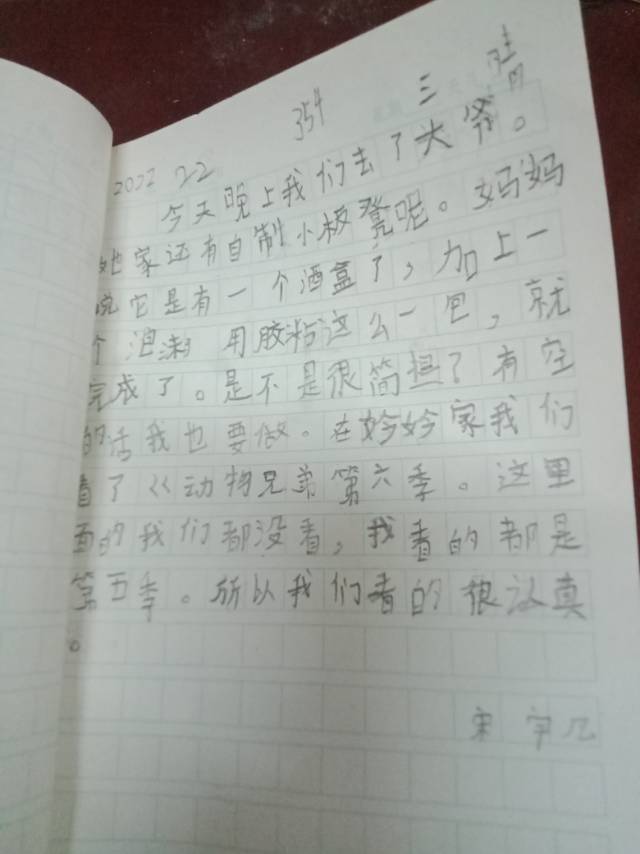 354 三 晴
2022 22
今天晚上我们去了大爷。
她家还有自制小板凳呢。妈妈
说它是有一个酒盒了，加上一
个泡沫 用胶粘这么一包，就
完成了。是不是很简担？有空
的话我也要做。在妗妗家我们
看了《动物兄弟第六季。这里
面的我们都没看，我看的都是
第五季。所以我们看的很认真
。
宋